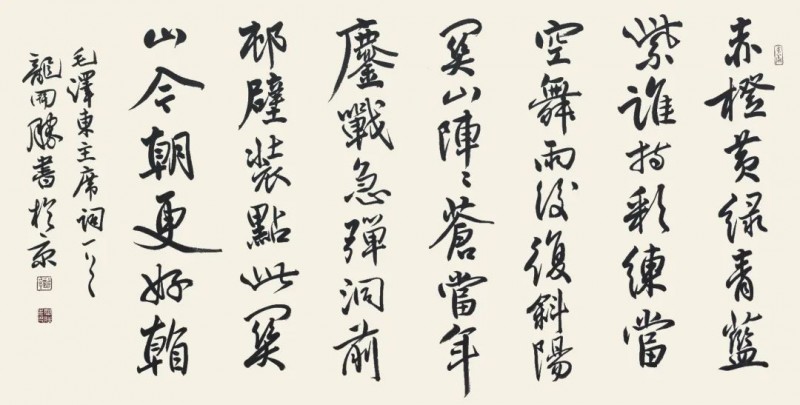 赤橙黄緑青藍
紫誰持彩練當
空舞雨後復斜陽
関山陣々蒼當年
鏖戰急彈洞前
邨壁裝點此関
山今朝更好看
毛澤東主席詞一首
龍開勝書於京